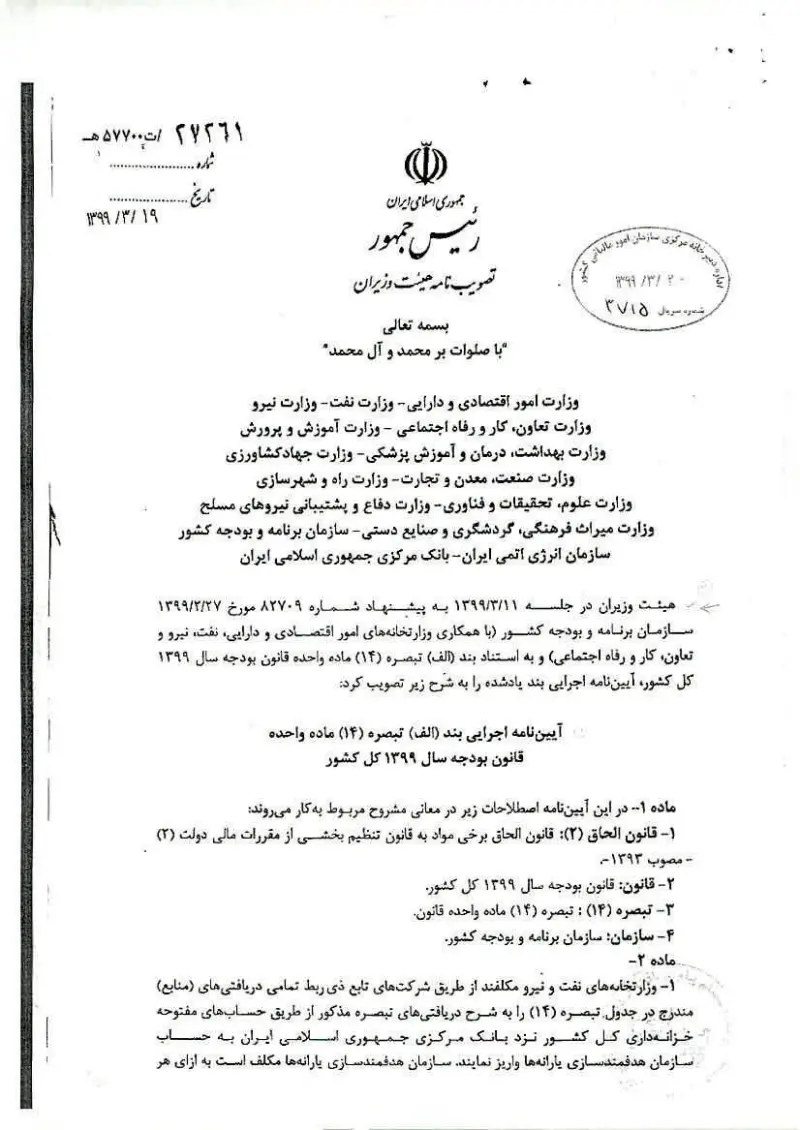 ۲۷۲۶۱ /ت۵۷۷۰۰هـ
شماره
تاریخ
۱۳۹۹/۳/۱۹
جمهوری اسلامی ایران
رئیس جمهور
تصویب نامه هیئت وزیران
اداره دبیرخانه مرکزی سازمان امور مالیاتی کشور
۱۳۹۹/۳/۲۰
شماره سریال ۳۷۱۵
بسمه تعالی
"با صلوات بر محمد و آل محمد"
وزارت امور اقتصادی و دارایی- وزارت نفت- وزارت نیرو
وزارت تعاون، کار و رفاه اجتماعی - وزارت آموزش و پرورش
وزارت بهداشت، درمان و آموزش پزشکی- وزارت جهادکشاورزی
وزارت صنعت، معدن و تجارت- وزارت راه و شهرسازی
وزارت علوم، تحقیقات و فناوری- وزارت دفاع و پشتیبانی نیروهای مسلح
وزارت میراث فرهنگی، گردشگری و صنایع دستی- سازمان برنامه و بودجه کشور
سازمان انرژی اتمی ایران- بانک مرکزی جمهوری اسلامی ایران
هیئت وزیران در جلسه ۱۳۹۹/۳/۱۱ به پیشنهاد شماره ۸۲۷۰۹ مورخ ۱۳۹۹/۲/۲۷
سازمان برنامه و بودجه کشور (با همکاری وزارتخانه‌های امور اقتصادی و دارایی، نفت، نیرو و
تعاون، کار و رفاه اجتماعی) و به استناد بند (الف) تبصره (۱۴) ماده واحده قانون بودجه سال ۱۳۹۹
کل کشور، آیین‌نامه اجرایی بند یادشده را به شرح زیر تصویب کرد:
آیین‌نامه اجرایی بند (الف) تبصره (۱۴) ماده واحده
قانون بودجه سال ۱۳۹۹ کل کشور
ماده ۱- در این آیین‌نامه اصطلاحات زیر در معانی مشروح مربوط به‌کار می‌روند:
۱- قانون الحاق (۲): قانون الحاق برخی مواد به قانون تنظیم بخشی از مقررات مالی دولت (۲)
- مصوب ۱۳۹۳-.
۲- قانون: قانون بودجه سال ۱۳۹۹ کل کشور.
۳- تبصره (۱۴) : تبصره (۱۴) ماده واحده قانون.
۴- سازمان: سازمان برنامه و بودجه کشور.
ماده ۲-
۱- وزارتخانه‌های نفت و نیرو مکلفند از طریق شرکت‌های تابع ذی ربط تمامی دریافتی‌های (منابع)
مندرج در جدول تبصره (۱۴) را به شرح دریافتی‌های تبصره مذکور از طریق حساب‌های مفتوحه
خزانه‌داری کل کشور نزد بانک مرکزی جمهوری اسلامی ایران به حساب
سازمان هدفمندسازی یارانه‌ها واریز نمایند. سازمان هدفمندسازی یارانه‌ها مکلف است به ازای هر